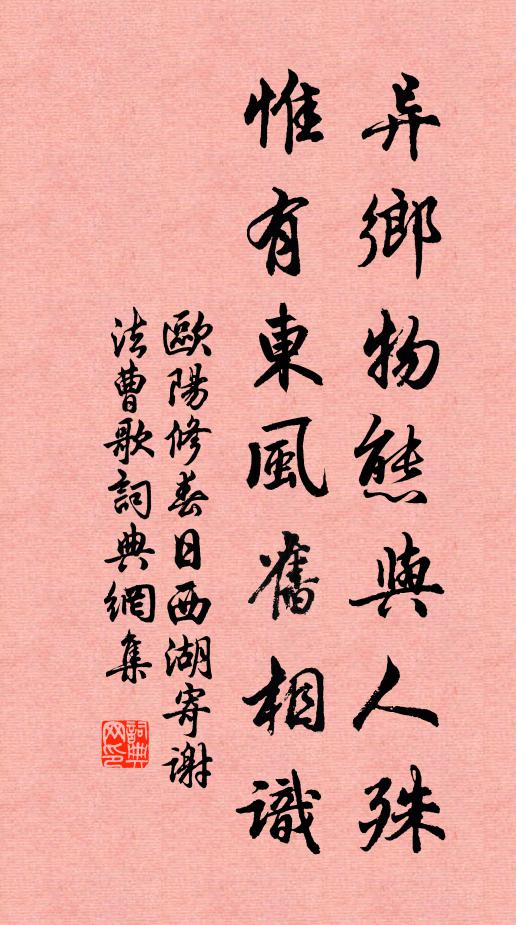 异鄉物態與人殊
惟有東風舊相識
歐陽修春日西湖寄謝
法曹歌詞典網集
詞典
网印